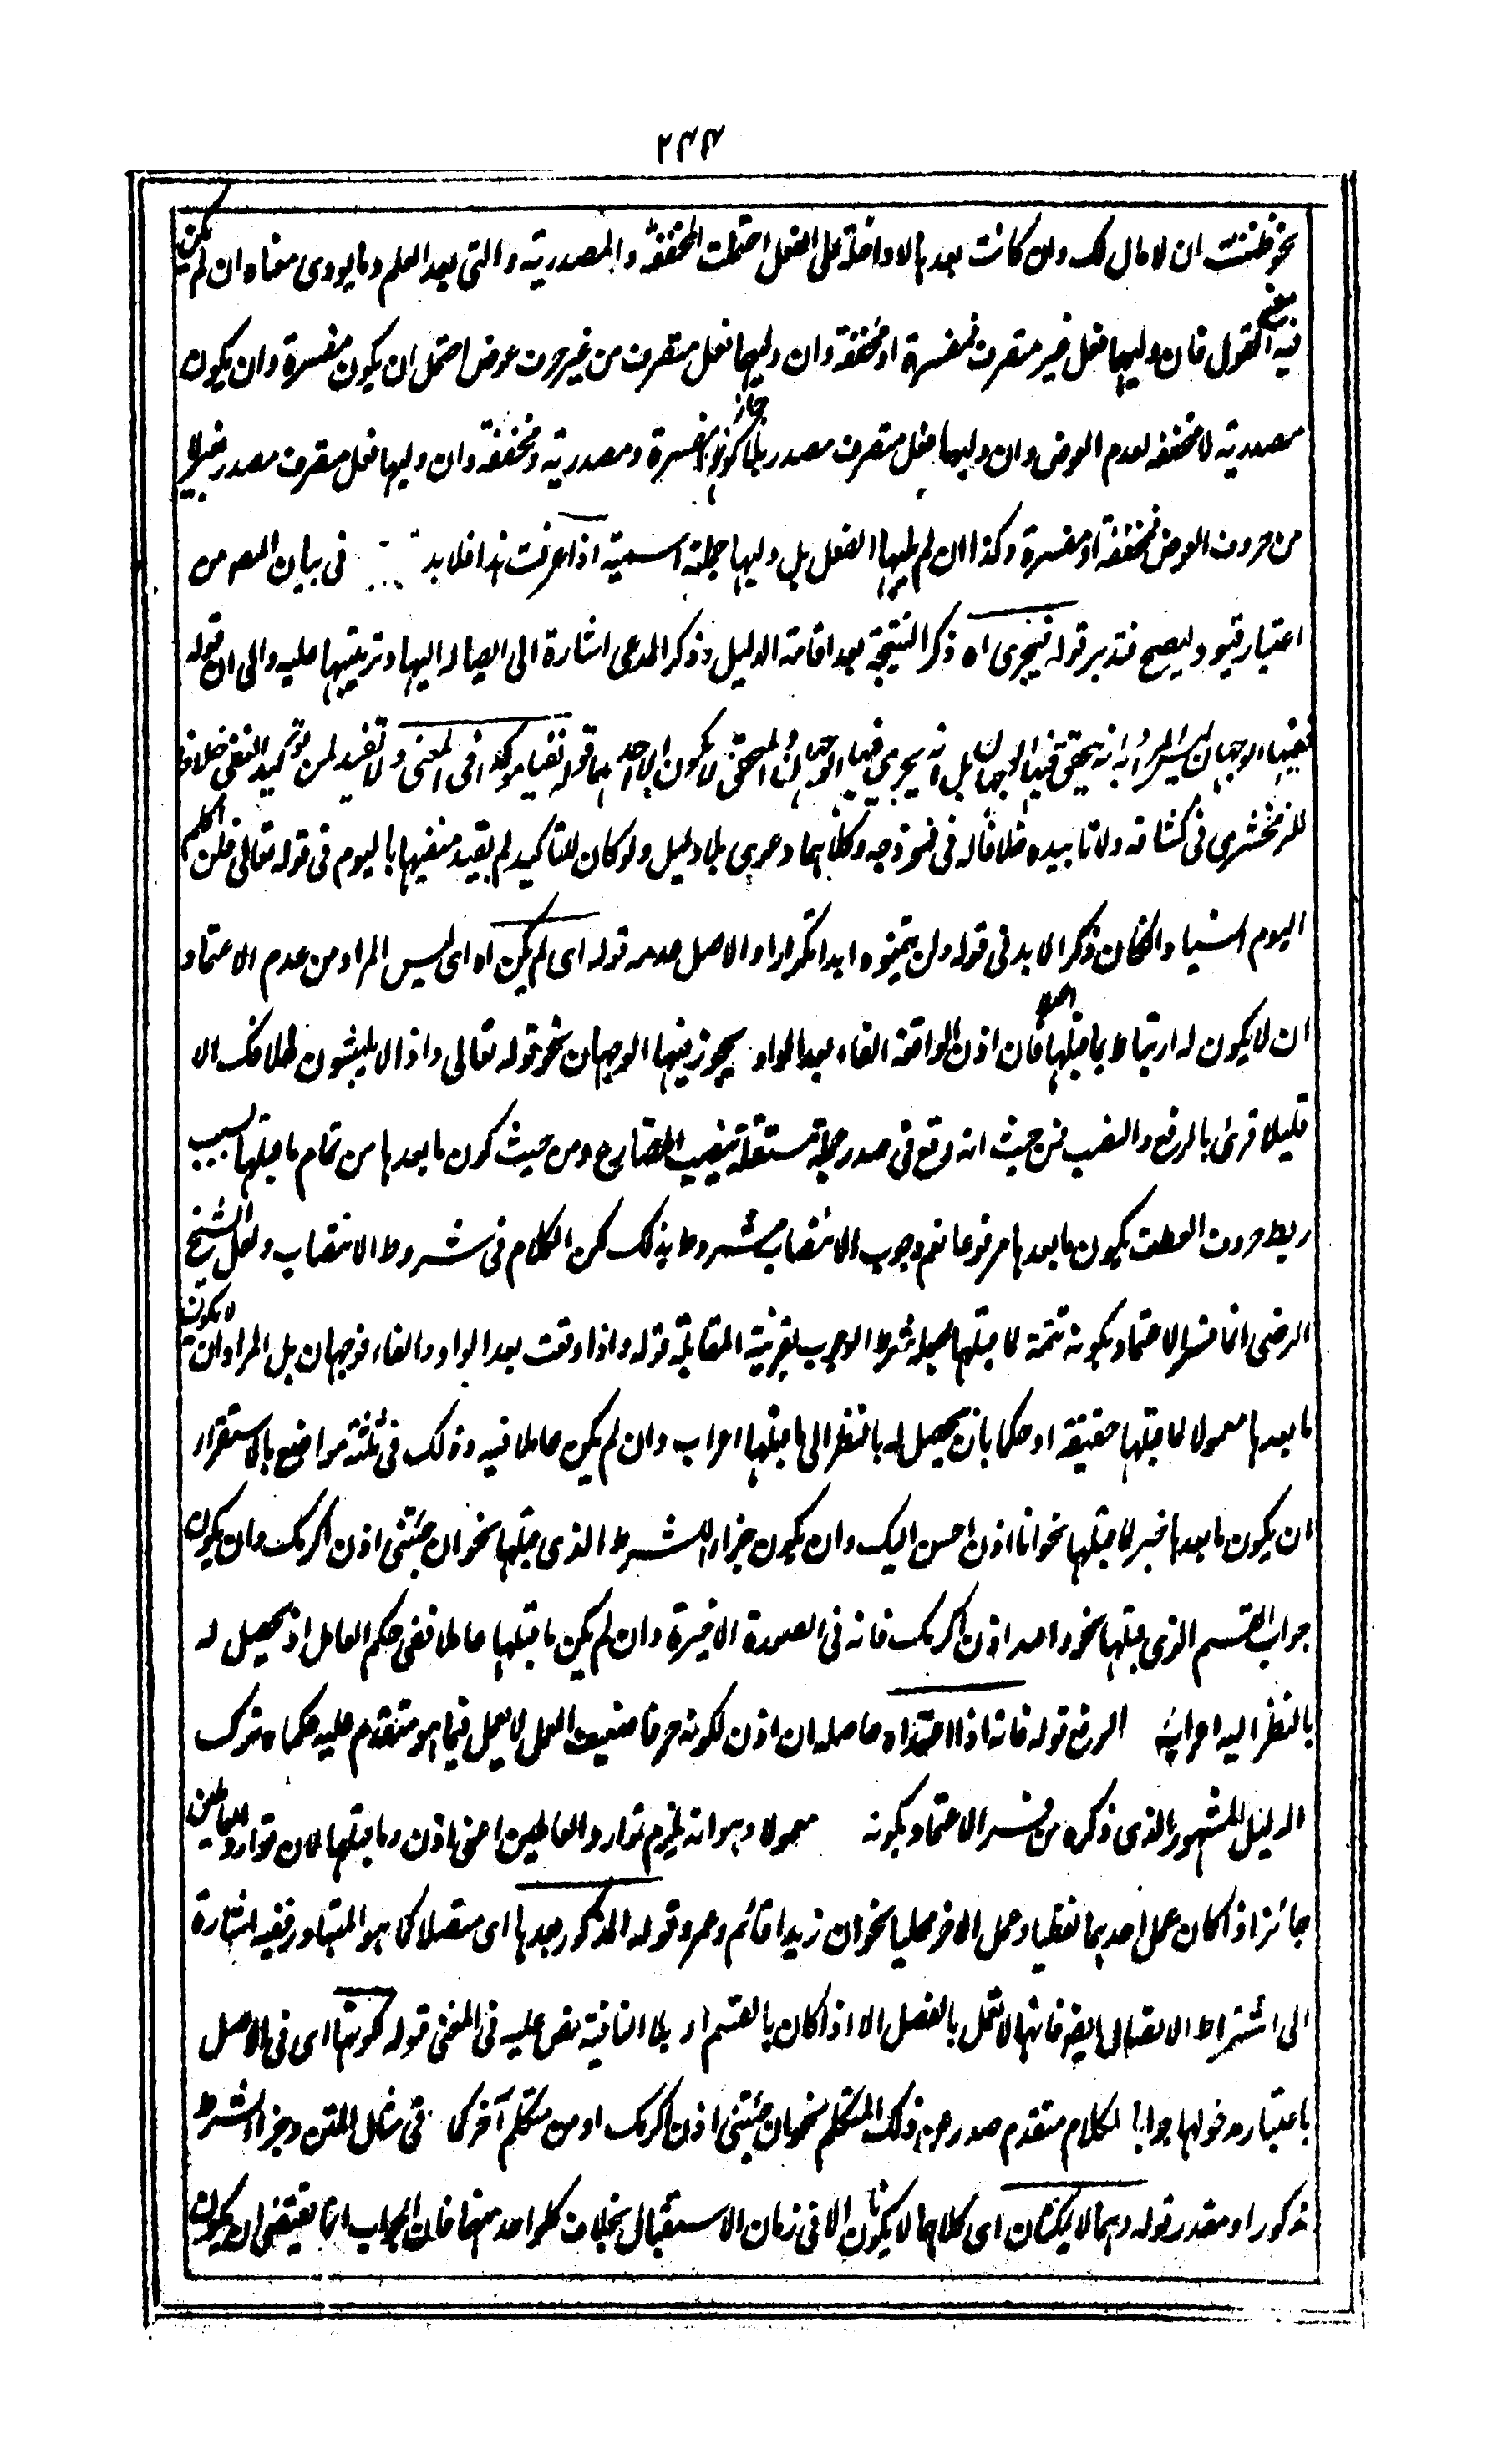 ٢٤٤
نحو ظننت ان لا مال لك وان كانت بعدها لا داخلة على الفعل احتملت المخففة والمصدرية والتى بعد العلم وما يودى معناه ان لم يكن
فيه معنى القول فان وليها فعل غير متصرف فمفسرة او مخففة وان وليها فعل متصرف من غير حرف عوض احتمل ان يكون مفسرة وان يكون
مصدرية لا مخففة لعدم العوض وان وليها فعل متصرف مصدر بلا جاز كونها مفسرة ومصدرية ومخففة وان وليها فعل متصرف مصدر بغير لا
من حروف العوض فمخففة او مفسرة وكذا ان لم يليها الفعل بل وليها جملة اسمية اذا عرفت هذا فلا بد فى بيان المص من
اعتبار قيود ليصح فتدبر قوله فيجرى اه ذكر النتيجة بعد اقامة الدليل وذكر المدعى اشارة الى ايصاله اليها وترتيبها عليه والى ان قوله
ففيها الوجهان ليس المراد به انه يتحقق فيها الوجهان بل انه يجرى فيها الوجهان والمتحقق لا يكون الا احدهما قوله نفيا موكدا فى المعنى ولا تفيد لن توكيد النفى خلافا
للزمخشرى فى كشافه ولا تابيده خلافا له فى نموذجه وكلاهما دعوى بلا دليل ولو كان للتاكيد لم يقيد منفيها باليوم فى قوله تعالى فلن اكلم
اليوم انسيا ولكان ذكر الابد فى قوله ولن يتمنوه ابدا تكرارا والاصل عدمه قوله اى لم يكن اه اى ليس المراد من عدم الاعتماد
ان لا يكون له ارتباط بما قبلها اصلا فان اذن الواقعة الفاء بعد الواو يجوز فيها الوجهان نحو قوله تعالى واذا لا يلبثون خلافك الا
قليلا قرئ بالرفع والنصب فمن حيث انه وقع فى صدر جملة مستقلة ينصب المضارع ومن حيث كون ما بعدها من تمام ما قبلها بسبب
ربط حروف العطف يكون ما بعدها مرفوعا نعم وجوب الانتصاب مشروط بذلك لكن الكلام فى شروط الانتصاب ولعل الشيخ
الرضى انما فسر الاعتماد بكونه تتمة لما قبلها لجعله شرط الوجوب بقرينة المقابلة قوله واذا وقعت بعد الواو والفاء فوجهان بل المراد ان لا يكون
ما بعدها معمولا لما قبلها حقيقة او حكما بان يحصل له بالنظر الى ما قبلها اعراب وان لم يكن عاملا فيه وذلك فى ثلثة مواضع بالاستقرار
ان يكون ما بعدها خبر لما قبلها نحو انا اذن احسن اليك وان يكون جزاء للشرط الذى قبلها نحو ان جئتنى اذن اكرمك وان يكون
جواب القسم الذى قبلها نحو والله اذن اكرمك فانه فى الصورة الاخيرة وان لم يكن ما قبلها عاملا ففى حكم العامل اذ يحصل له
بالنظر اليه اعرابية الرفع قوله فانه اذا اعتمد اه حاصله ان اذن لكونه حرفا ضعيف العمل لا يعمل فيما هو متقدم عليه حكما وترك
الدليل المشهور الذى ذكره من فسر الاعتماد بكونه معمولا وهو انه يلزم توارد العاملين اعنى اذن وما قبلها لان توارد العاملين
جائز اذا كان عمل احدهما لفظيا وعمل الاخر محليا نحو ان زيدا قائم وعمرو قوله المذكور بعدها اى متصلا كما هو المتبادر ففيه اشارة
الى اشتراط الاتصال ايضا فانها لا تعمل بالفصل الا اذا كان بالقسم او بلا النافية نص عليه فى المغنى قوله كونها اى فى الاصل
باعتبار مدخولها جوابا لكلام متقدم صدر عن ذلك المتكلم نحو ان جئتنى اذن اكرمك او من متكلم آخر كما فى مثال المتن وجزاء لشرط
مذكور او مقدر قوله وهما لا يمكنان اى كلاهما لا يكونان الا فى زمان الاستقبال بخلاف كل واحد منهما فان الجواب انما يقتضى ان يكون